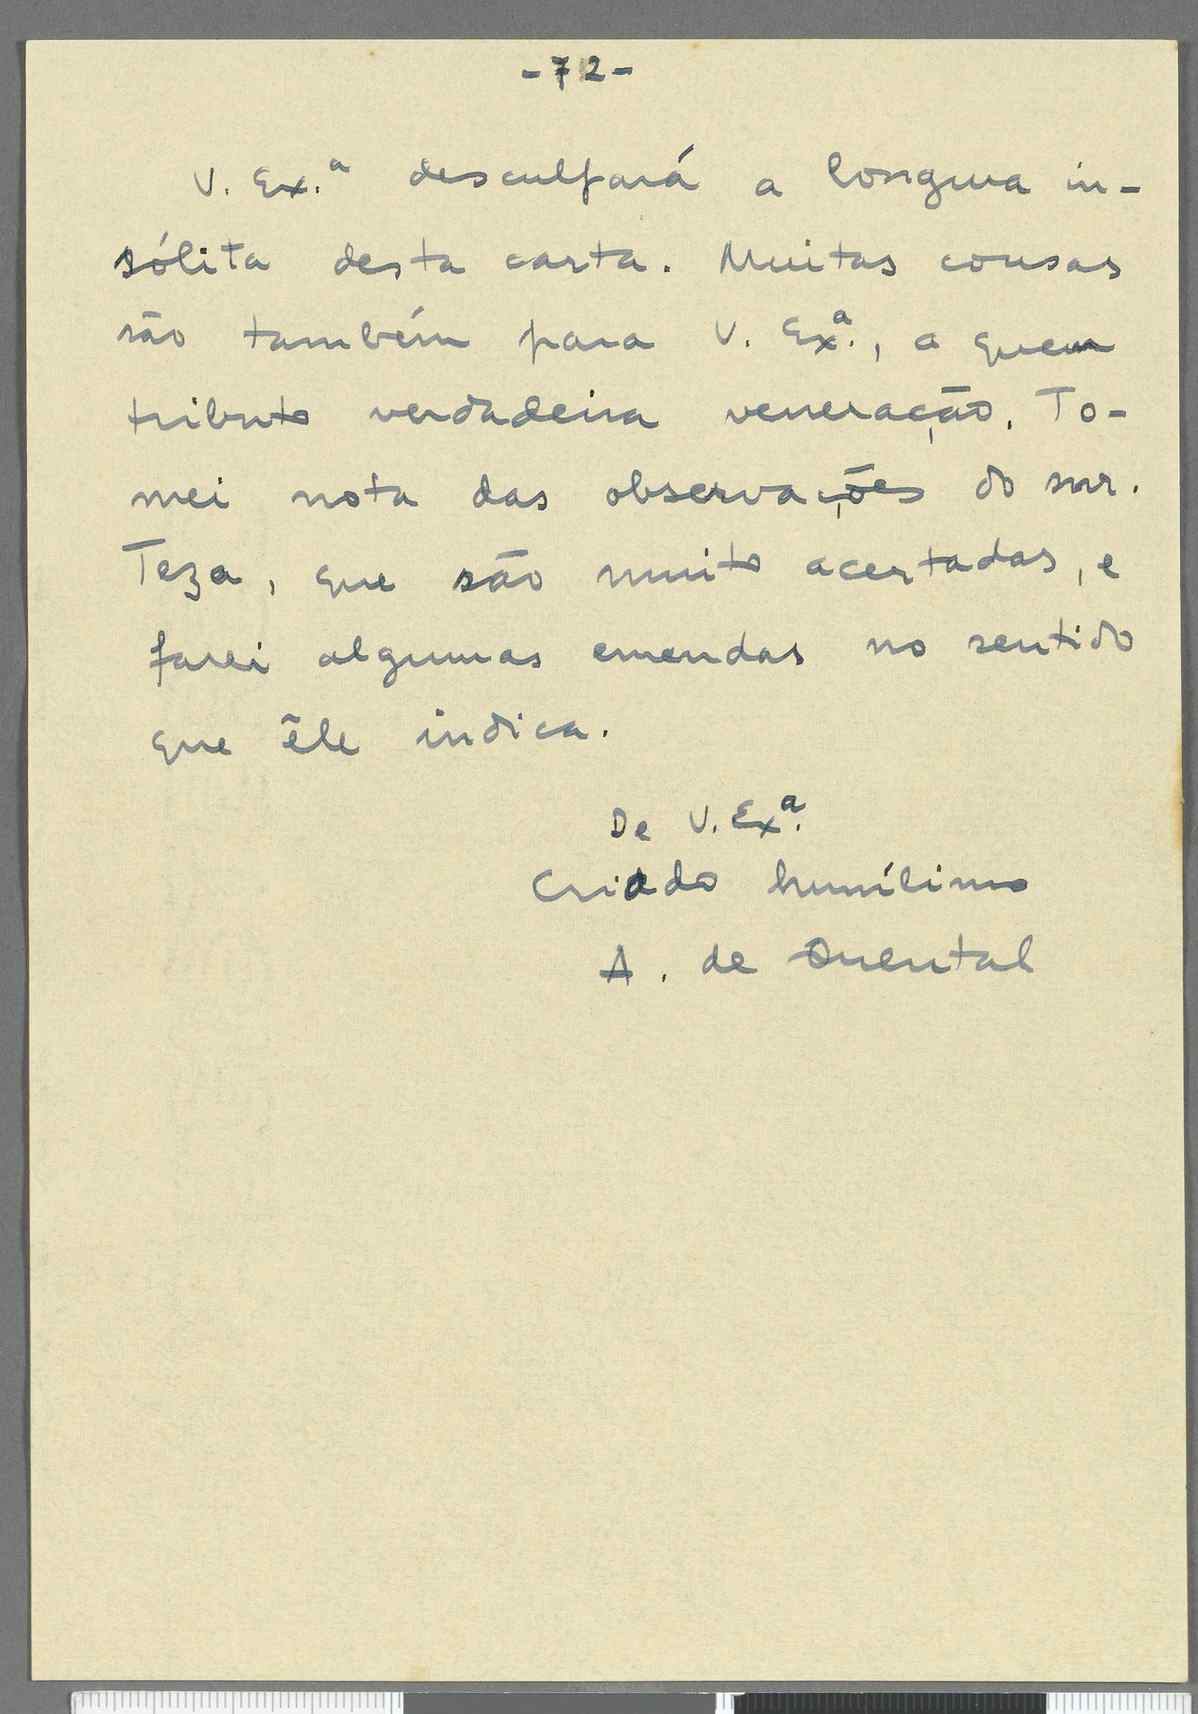 -72-
V. Ex.ª desculpará a longura in-
sólita desta carta. Muitas cousas
são também para V. Exª., a quem
tributo verdadeira veneração. To-
mei nota das observações do snr.
Teza, que são muito acertadas, e
farei algumas emendas no sentido
que êle indica.
De V. Exª.
Criado humílimo
A. de Quental